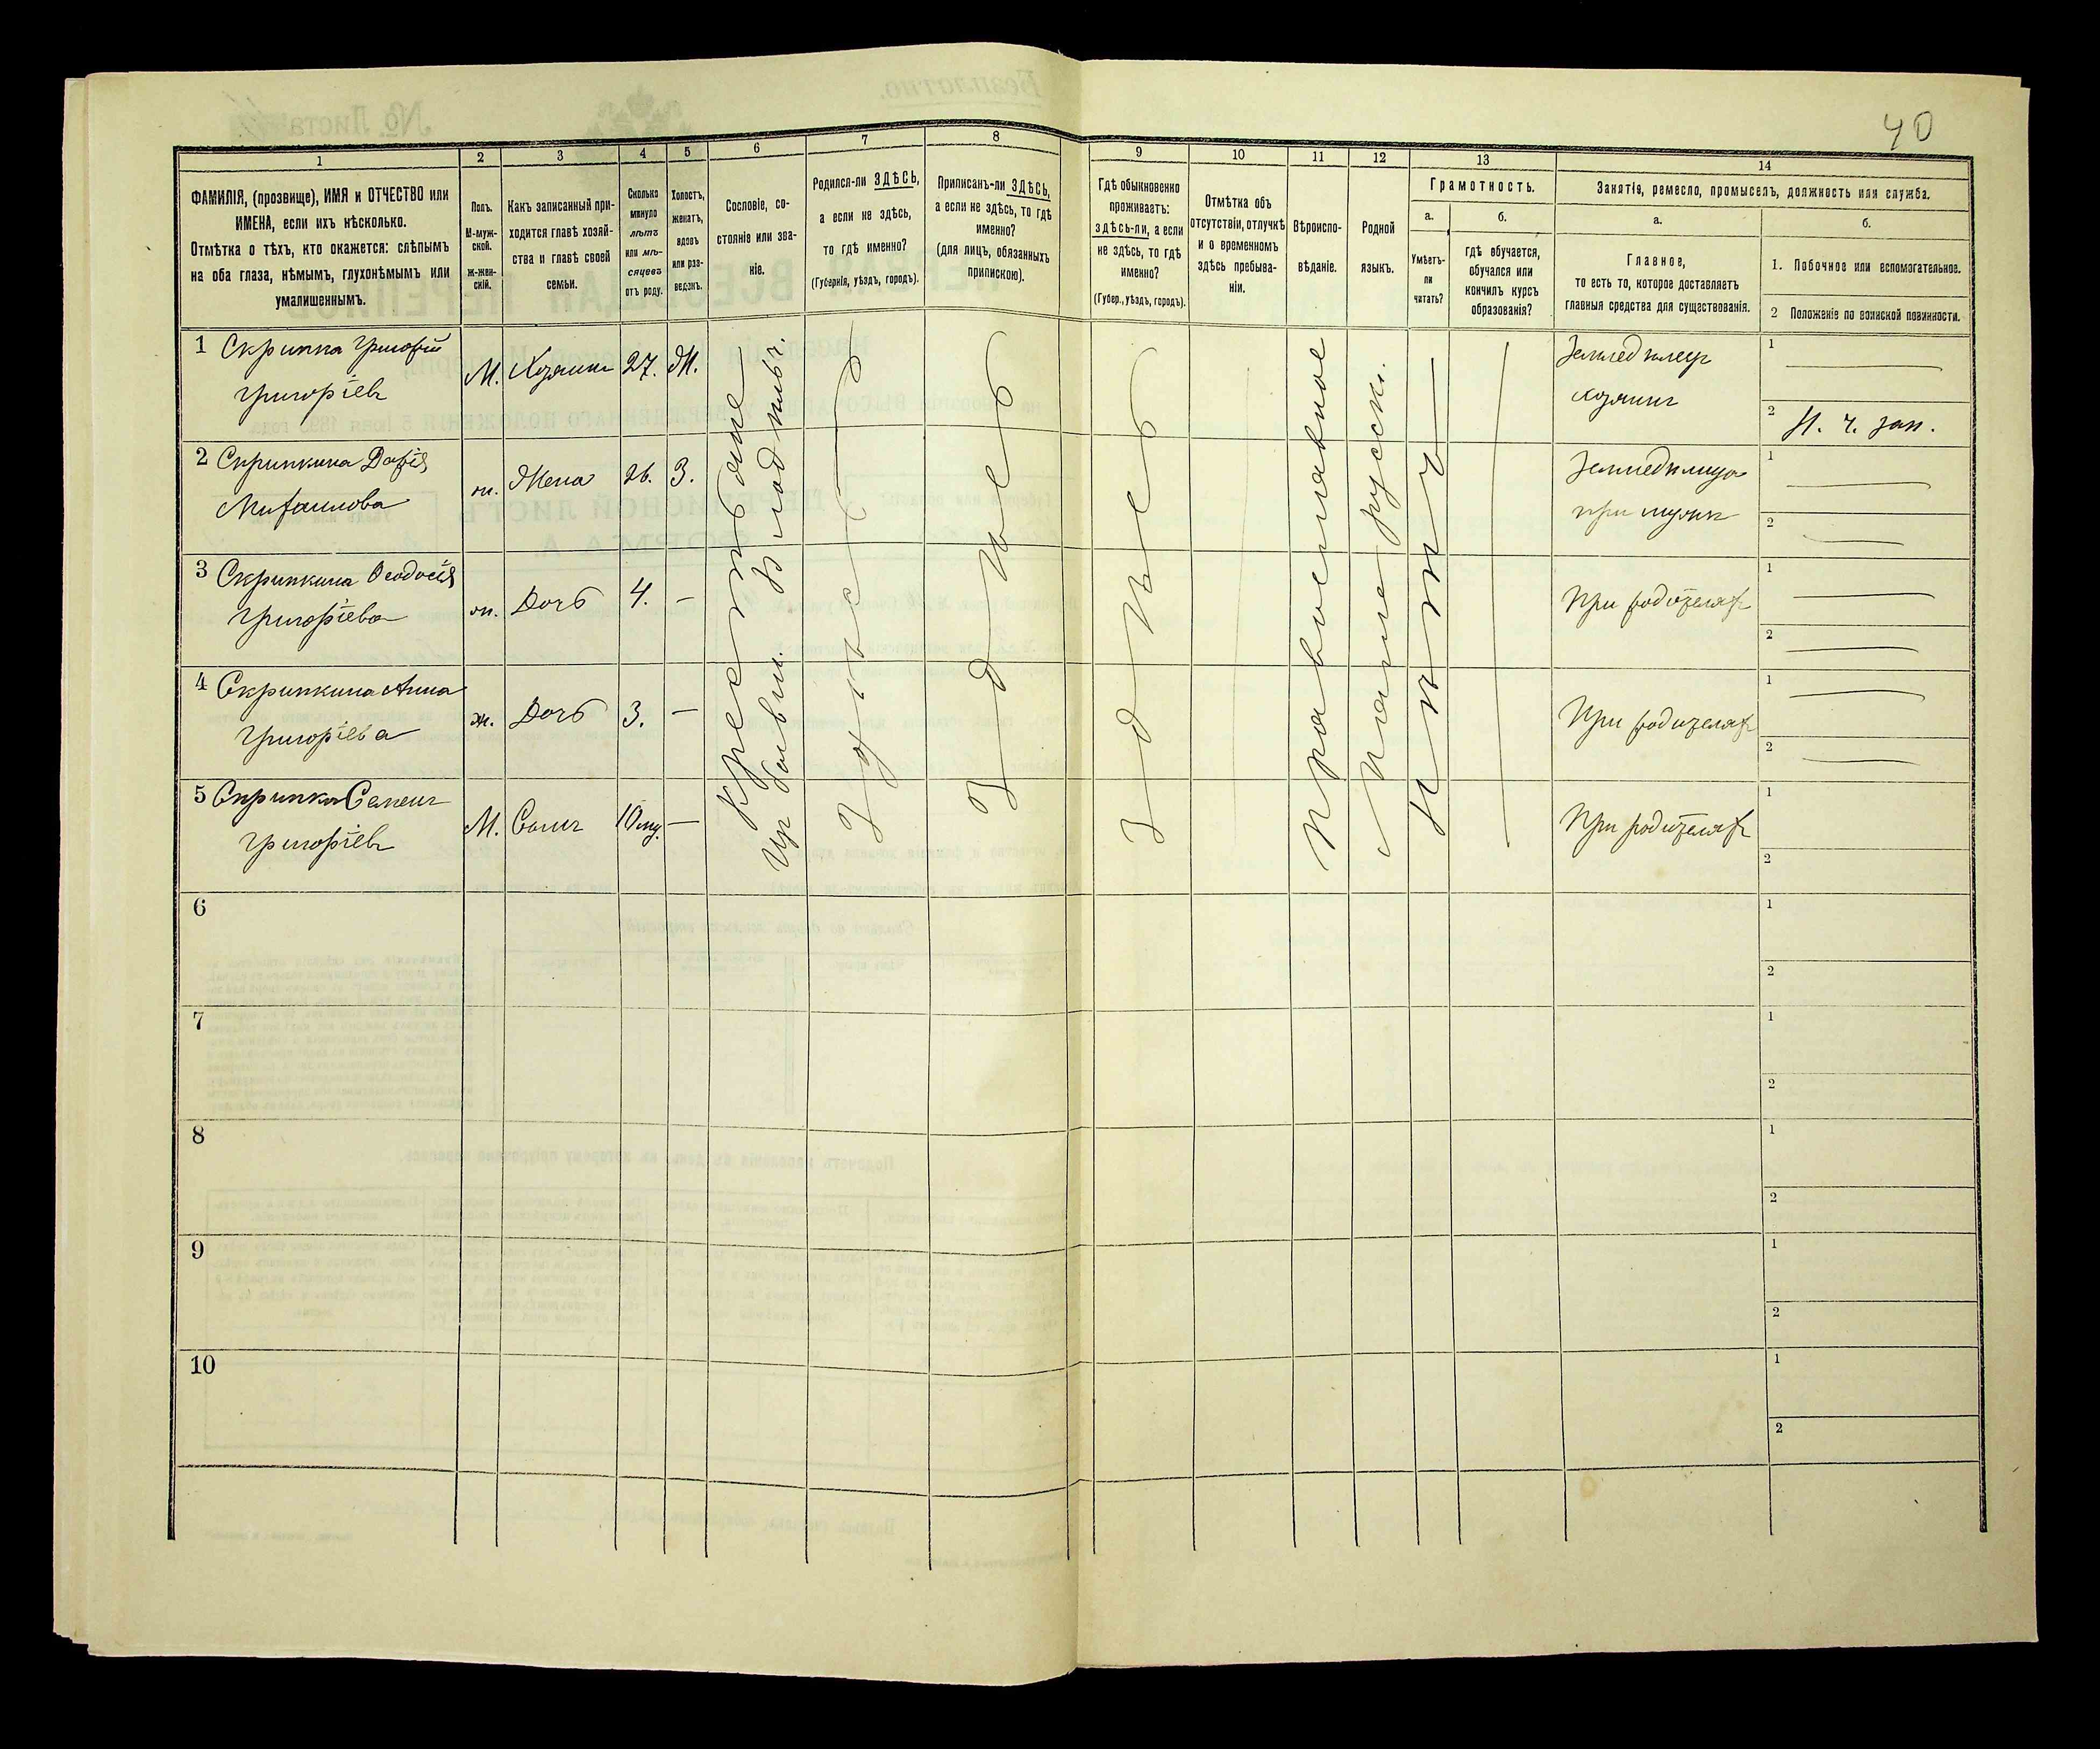 40
1
2
3
4
5
6
7
8
9
10
11
12
13
14
ФАМИЛІЯ, (прозвище), ИМЯ и ОТЧЕСТВО или
ИМЕНА, если ихъ нѣсколько.
Отмѣтка о тѣхъ, кто окажется: слѣпымъ
на оба глаза, нѣмымъ, глухонѣмымъ или
умалишеннымъ.
Полъ.
М-муж-
ской.
Ж-жен-
скій.
Какъ записанный при-
ходится главѣ хозяй-
ства и главѣ своей
семьи.
Сколько
минуло
лѣтъ
или мѣ-
сяцевъ
отъ роду.
Холостъ,
женатъ,
вдовъ
или раз-
веденъ.
Сословіе, со-
стояніе или зва-
ніе.
Родился-ли ЗДѢСЬ,
а если не здѣсь,
то гдѣ именно?
(Губернія, уѣздъ, городъ).
Приписанъ-ли ЗДѢСЬ,
а если не здѣсь, то гдѣ
именно?
(для лицъ, обязанныхъ
припискою).
Гдѣ обыкновенно
проживаетъ:
здѣсь-ли, а если
не здѣсь, то гдѣ
именно?
(Губер., уѣздъ, городъ).
Отмѣтка объ
отсутствіи, отлучкѣ
и о временномъ
здѣсь пребыва-
ніи.
Вѣроиспо-
вѣданіе.
Родной
языкъ.
Грамотность.
а.
Умѣетъ-
ли
читать?
б.
гдѣ обучается,
обучался или
кончилъ курсъ
образованія?
Занятіе, ремесло, промыселъ, должность или служба.
а.
Главное,
то есть то, которое доставляетъ
главныя средства для существованія.
б.
1. Побочное или вспомогательное.
2 Положеніе по воинской повинности.
1 Скрипка Григорій
Григоріевъ
М.
Хозяинъ
27.
Ж.
Земледѣлецъ
хозяинъ
1
2 Н. ч. зап.
2 Скрипкина Дарія
Михаилова
ж.
Жена
26.
З.
Земледѣлица
при мужѣ
1
2
3 Скрипкина Ѳеодосія
Григоріева
ж.
Дочь
4.
—
При родителяхъ
1
2
4 Скрипкина Анна
Григоріева
ж.
Дочь
3.
—
При родителяхъ
1
2
5 Скрипка Семенъ
Григоріевъ
М.
Сынъ
10 мц.
—
При родителяхъ
1
2
Крестьяне
бывш. Владѣльч.
Здѣсь
Здѣсь
Здѣсь
Православное
Мало русск.
Нѣтъ
6
1
2
7
1
2
8
1
2
9
1
2
10
1
2